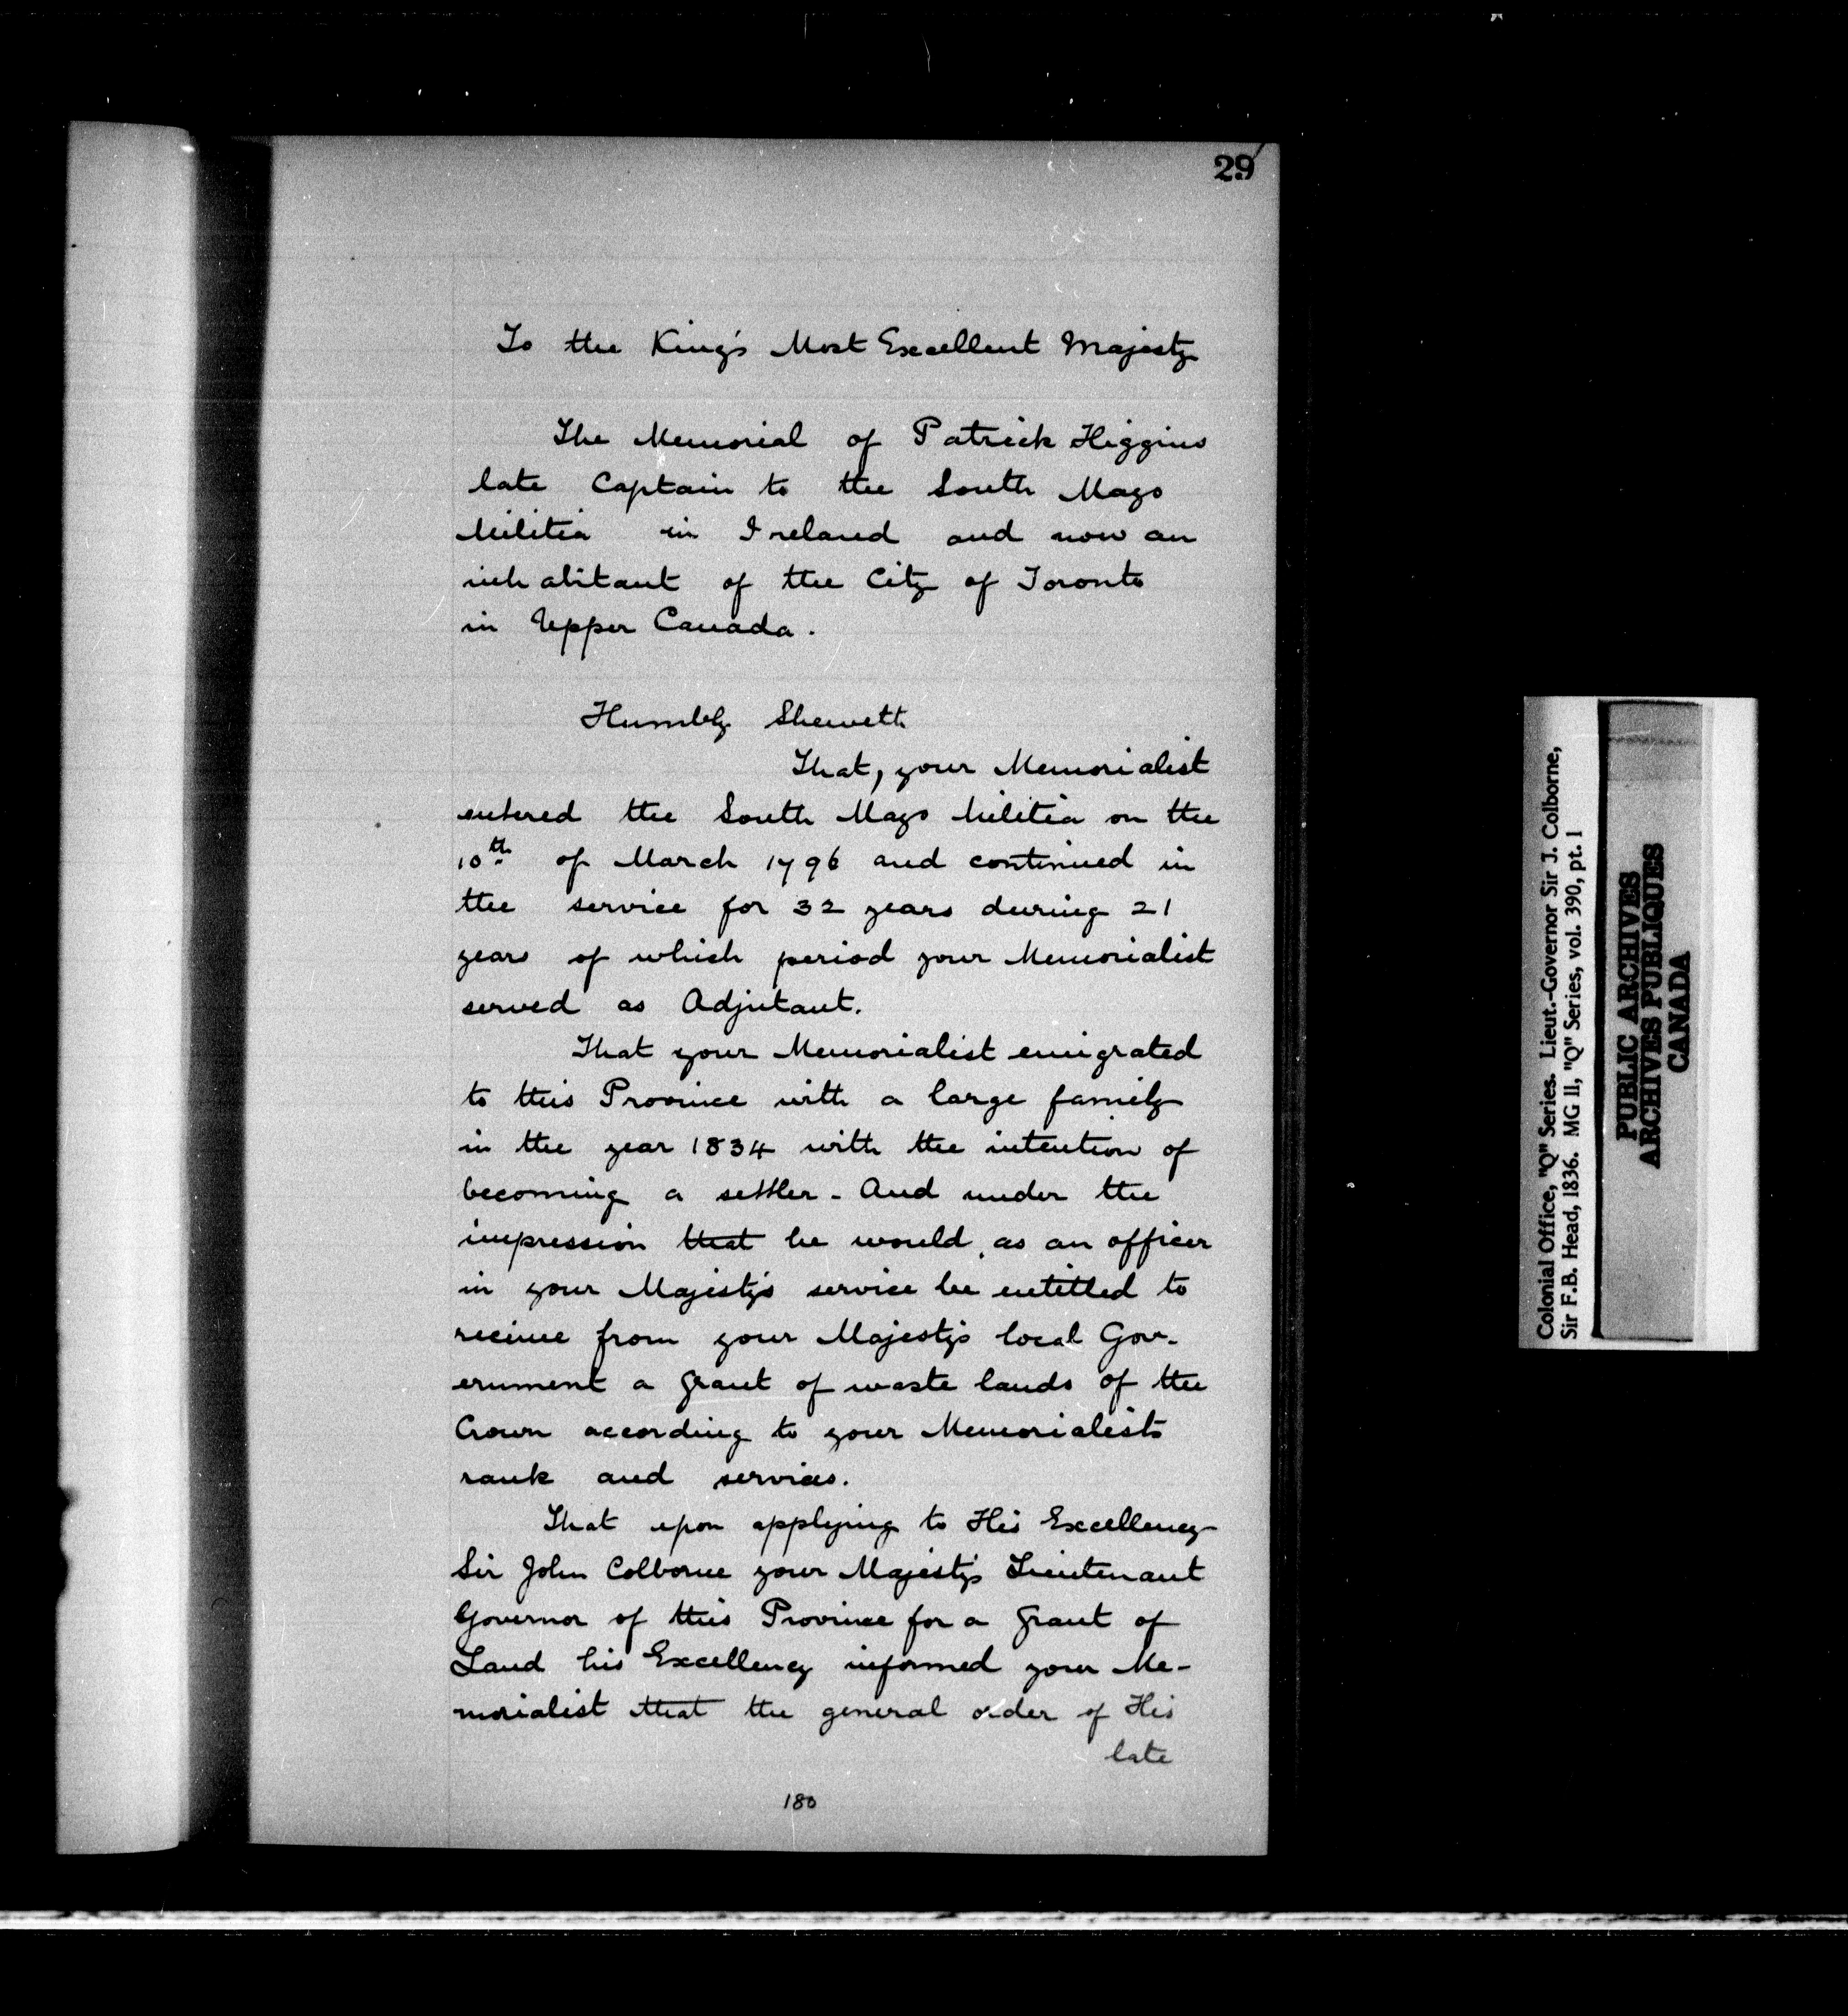 29
To the King's Most Excellent Majesty
The Memorial of Patrick Higgins
late Captain to the South Mayo
Militia in Ireland and now an
inhabitant of the City of Toronto
in Upper Canada.
Humbly Sheweth
That, your Memorialist
entered the South Mayo Militia on the
10th of March 1796 and continued in
the service for 32 years during 21
years of which period your Memorialist
served as Adjutant.
That your Memorialist emigrated
to this Province with a large family
in the year 1834 with the intention of
becoming a settler - And under the
impression that he would, as an officer
in your Majesty's service be entitled to
receive from your Majesty's local Gov-
ernment a grant of waste lands of the
Crown according to your Memorialists
rank and services.
That upon applying to His Excellency
Sir John Colborne your Majesty's Lieutenant
Governor of this Province for a grant of
Land his Excellency informed your Me-
morialist that the general order of His
late
180
Colonial Office, "Q" Series. Lieut.-Governor Sir J. Colborne,
Sir F.B. Head, 1836. MG 11, "Q" Series, vol. 390, pt. 1
PUBLIC ARCHIVES
ARCHIVES PUBLIQUES
CANADA